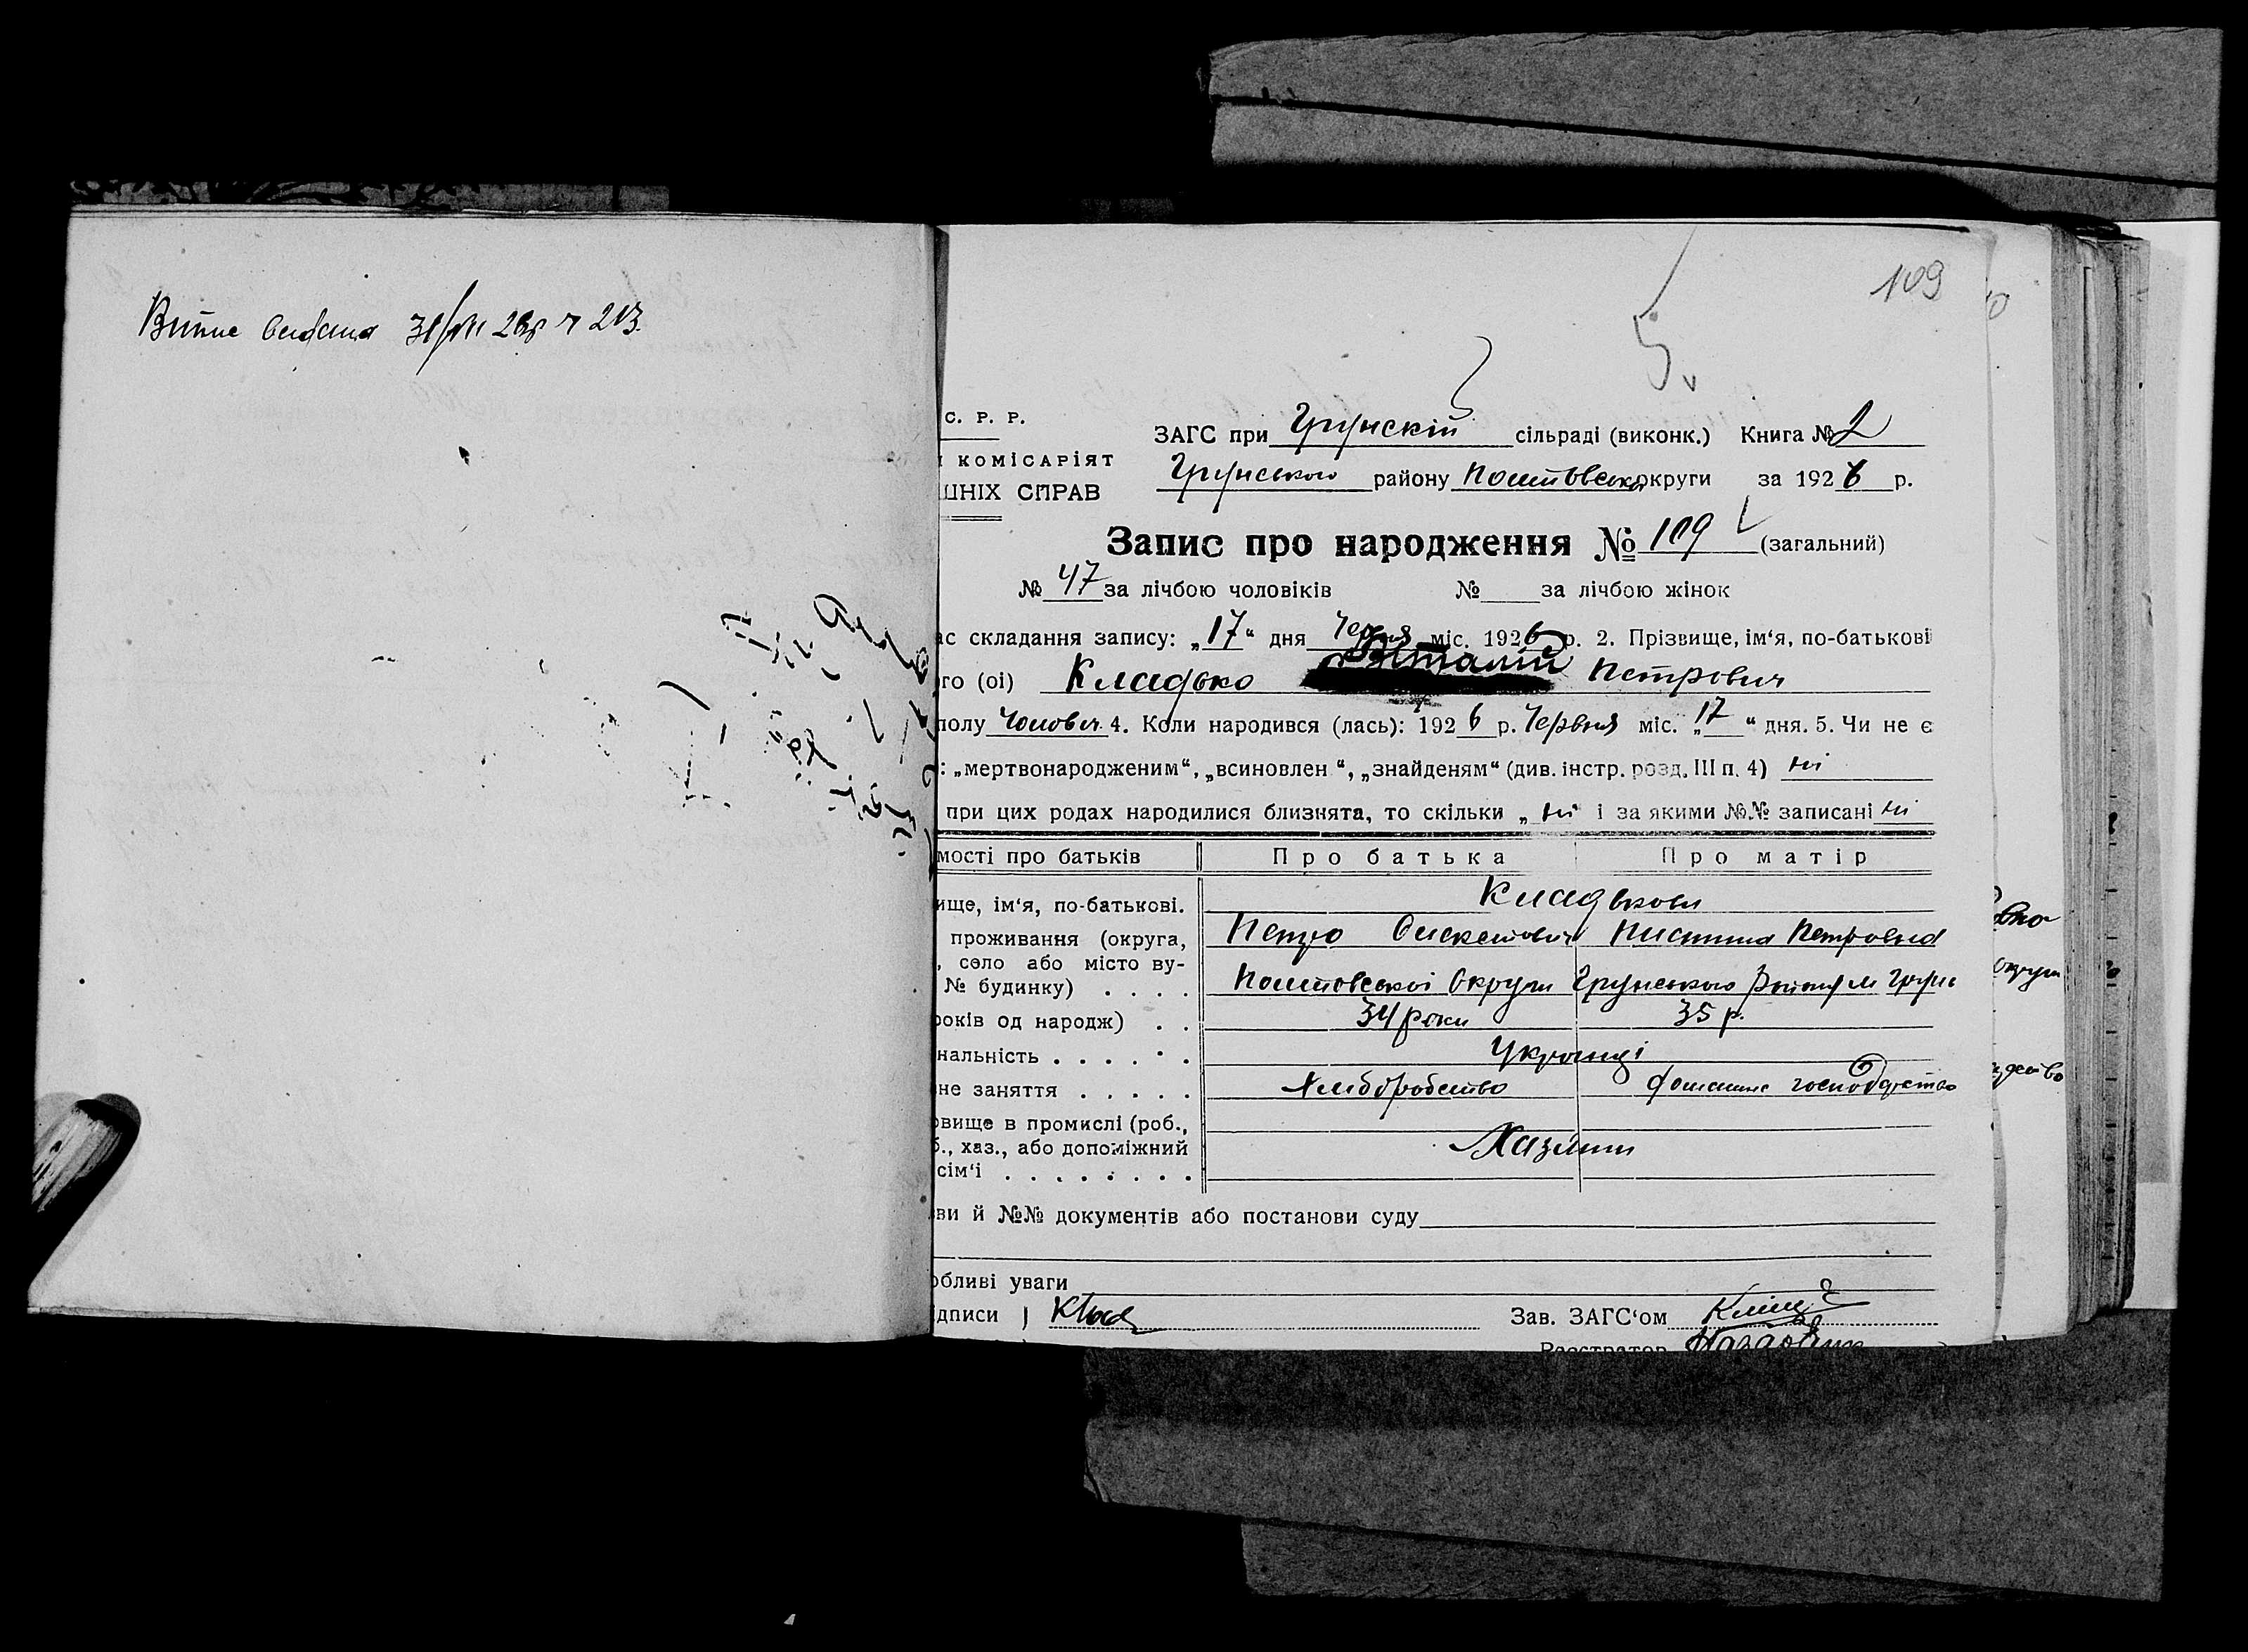 Витяг видана 31/VII 26р ч 213.
109
5
С. Р. Р.
ЗАГС при Грунскій сільраді (виконк.) Книга № 2
КОМІСАРІЯТ
Грунського району Полтовської округи за 1926 р.
ШНІХ СПРАВ
Запис про народження № 109 (загальний)
№ 47 за лічбою чоловіків № за лічбою жінок
ас складання запису: „17“ дня Червня міс. 1926 р. 2. Прізвище, ім‘я, по-батькові
го (ої) Кладько Віталій Петрович
полу Чоловіч. 4. Коли народився (лась): 1926 р. Червня міс. „17“ дня. 5. Чи не є
: „мертвонародженим“, „всиновлен “, „знайденям“ (див. інстр. розд. III п. 4) ні
при цих родах народилися близнята, то скільки „ ні “ і за якими №№ записані ні
мості про батьків Про батька Про матір
ище, ім‘я, по-батькові. Кладькови
проживання (округа, Петро Петровна
, село або місто ву-
№ будинку) . . . . Полтовської Округи Грунського Району м Грунь
років од народж) . . 34 роки 35 р.
нальність . . . . . . Українці
не заняття . . . . . Хліборобство домашнє господарство
овище в промислі (роб.,
б., хаз., або допоміжний Хазяїни
сім‘ї . . . . . . . .
ви й №№ документів або постанови суду
обливі уваги
ідписи Клад Зав. ЗАГС‘ом
Реєстратор